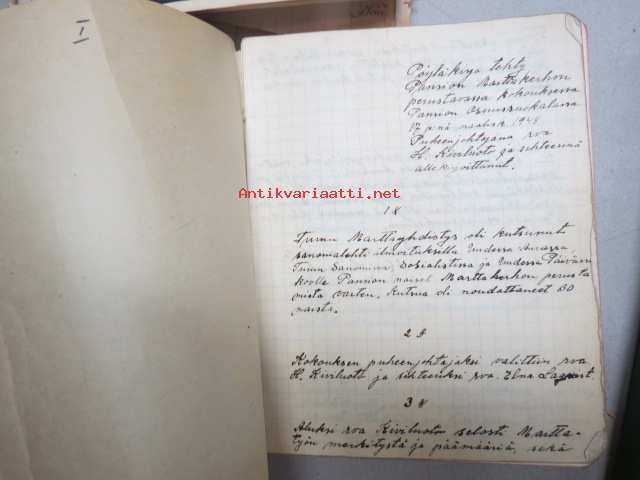 I
Pöytäkirja tehty
Pansion Marttakerhon
perustavassa kokouksessa
Pansion Osuusruokalassa
17 p:nä maalisk. 1945
Puheenjohtajana rva
H. Kiviluoto ja sihteerinä
allekirjoittanut.
Antikvariaatti.net
1 §
Turun Marttayhdistys oli kutsunut
sanomalehti ilmoituksella Uudessa Aurassa
Turun Sanomissa, Sosialistissa ja Uudessa Päivässä
koolle Pansion naiset Marttakerhon perusta
mista varten. Kutsua oli noudattaneet 60
naista.
2 §
Kokouksen puheenjohtajaksi valittiin rva
H. Kiviluoto ja sihteeriksi rva. Elna
3 §
Aluksi rva Kiviluoto selosti Martta-
työn merkitystä ja päämääriä, sekä